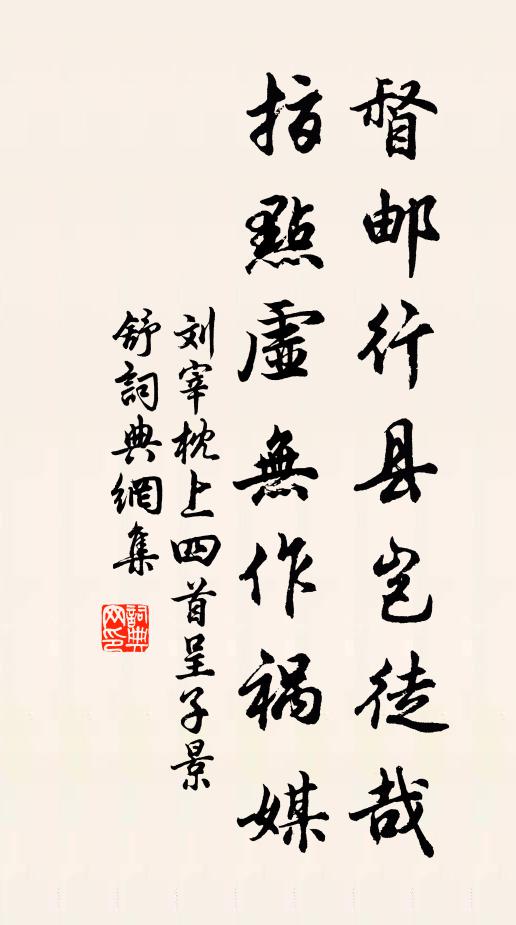 督邮行县岂徒哉
指點虛無作祸媒
刘宰枕上四首呈子景
舒詞典網集
詞典网印